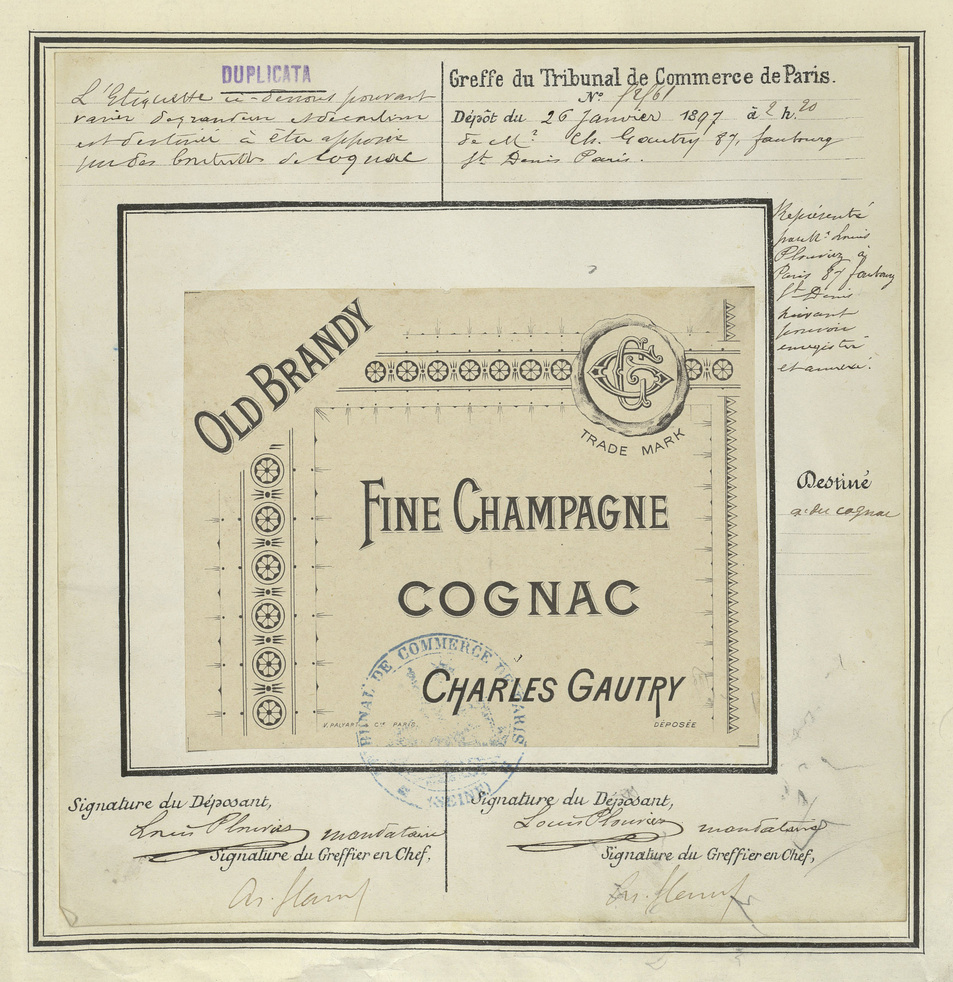 DUPLICATA
L'Etiquette ci-dessous pouvant
varier de grandeur et de couleur
est destinée à être apposée
sur des bouteilles de Cognac
Greffe du Tribunal de Commerce de Paris.
N°
Dépôt du 26 Janvier 1897 à 2 h. 20
de Mr. Ch. Gautry 87, faubourg
St Denis Paris.
Représenté
par Mr Louis
Plouviez à
Paris 87 faubourg
St Denis
suivant
pouvoir
enregistré
et annexé.
Destiné
à du cognac
OLD BRANDY
CG
TRADE MARK
FINE CHAMPAGNE
COGNAC
CHARLES GAUTRY
V. PALYART & Cie PARIS.
DÉPOSÉE
TRIBUNAL DE COMMERCE DE PARIS
(SEINE)
Signature du Déposant,
Louis Plouviez mandataire
Signature du Greffier en Chef,
Signature du Déposant,
Louis Plouviez mandataire
Signature du Greffier en Chef,